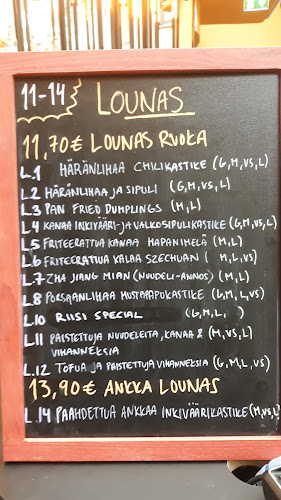 11-14 LOUNAS
11,70€ LOUNAS RUOKA
L.1 HÄRÄNLIHAA CHILIKASTIKE (G,M,VS,L)
L.2 HÄRÄNLIHAA JA SIPULI (G,M,VS,L)
L3 PAN FRIED DUMPLINGS (M,L)
L4 KANAA INKIVÄÄRI-JA VALKOSIPULIKASTIKE (G,M,VS,L)
L5 FRITEERATTUA KANAA HAPANIMELÄ (M,L)
L6 FRITEERATTUA KALAA SZECHUAN (M,L,VS)
L7 ZHA JIANG MIAN (NUUDELI-ANNOS) (M,L)
L8 PORSAANLIHAA MUSTAPAPUKASTIKE (G,M,L,VS)
L10 RIISI SPECIAL (G,M,L, )
L11 PAISTETTUJA NUUDELEITA, KANAA & (M,VS,L)
VIHANNEKSIA
L.12 TOFUA JA PAISTETTUJA VIHANNEKSIA (G,M,L,VS)
13,90€ ANKKA LOUNAS
L.14 PAAHDETTUA ANKKAA INKIVÄÄRIKASTIKE (M,VS,L)